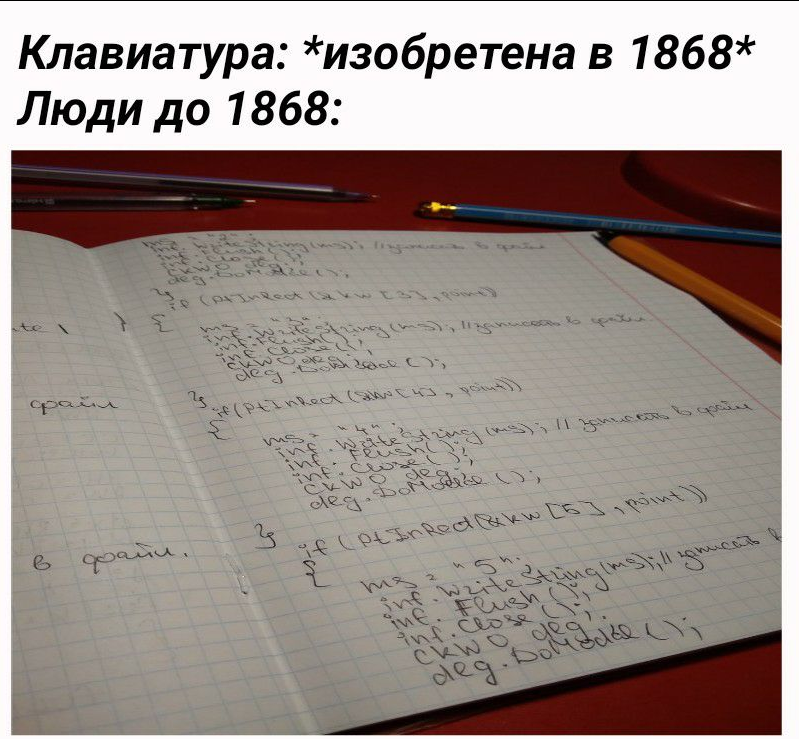 Клавиатура: *изобретена в 1868*
Люди до 1868:
ms = "2";
inf.WriteString(ms); //записать в файл
inf.Flush();
inf.Close();
CKWO deg;
deg.DoModal();
}
if (PtInRect(&kw[3], point))
{
ms = "3";
inf.WriteString(ms); //записать в файл
inf.Flush();
inf.Close();
CKWO deg;
deg.DoModal();
}
if (PtInRect(&kw[4], point))
{
ms = "4";
inf.WriteString(ms); // записать в файл
inf.Flush();
inf.Close();
CKWO deg;
deg.DoModal();
}
if (PtInRect(&kw[5], point))
{
ms = "5";
inf.WriteString(ms); // записать в
inf.Flush();
inf.Close();
CKWO deg.
deg.DoModal();
te
}
файл
в файл.